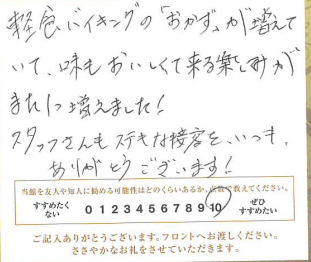 軽食バイキングの「おかず」が増えて
いて、味もおいしくて来る楽しみが
また1つ増えました!
スタッフさんもステキな接客を、いつも、
ありがとうございます!
当館を友人や知人に勧める可能性はどのくらいあるか、点数で教えてください。
すすめたくない 0 1 2 3 4 5 6 7 8 9 10 ぜひすすめたい
ご記入ありがとうございます。フロントへお渡しください。
ささやかなお礼をさせていただきます。